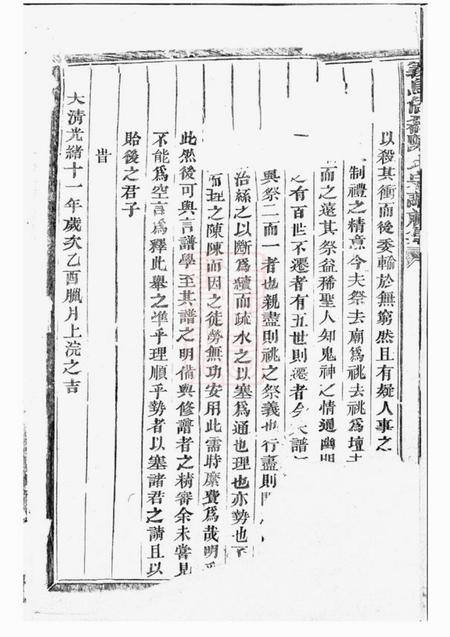 以殺其衝而後委輸於無窮然且有疑人事之
制禮之精意今夫祭去廟為祧去祧為壇去
而之遠其祭益稀聖人知鬼神之情通幽明
之有百世不遷者有五世則遷者今夫譜
與祭二而一者也親盡則祧之祭義也行盡則
治絲之以斷為續而疏水之以塞為通也理也亦勢也
而理之陳陳而因之徒勞無功安用此需時糜費為哉明乎
此然後可與言譜學至其譜之明備與修譜者之精審余未嘗見
不能為空言為釋此舉之準乎理順乎勢者以塞諸君之請且以
貽後之君子
旹
大清光緒十一年歲次乙酉臘月上浣之吉